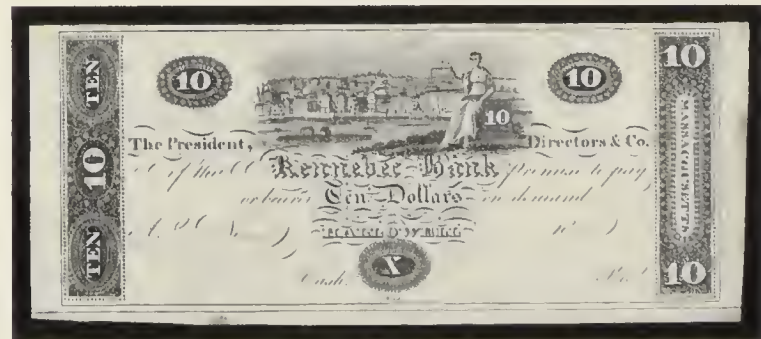 TEN 10 TEN
10 10 10
The President, Directors & Co.
of the Kennebec Bank promise to pay
or bearer Ten Dollars on demand
HALLOWELL
X
Cash. Pres.
10 MASSACHUSETTS 10